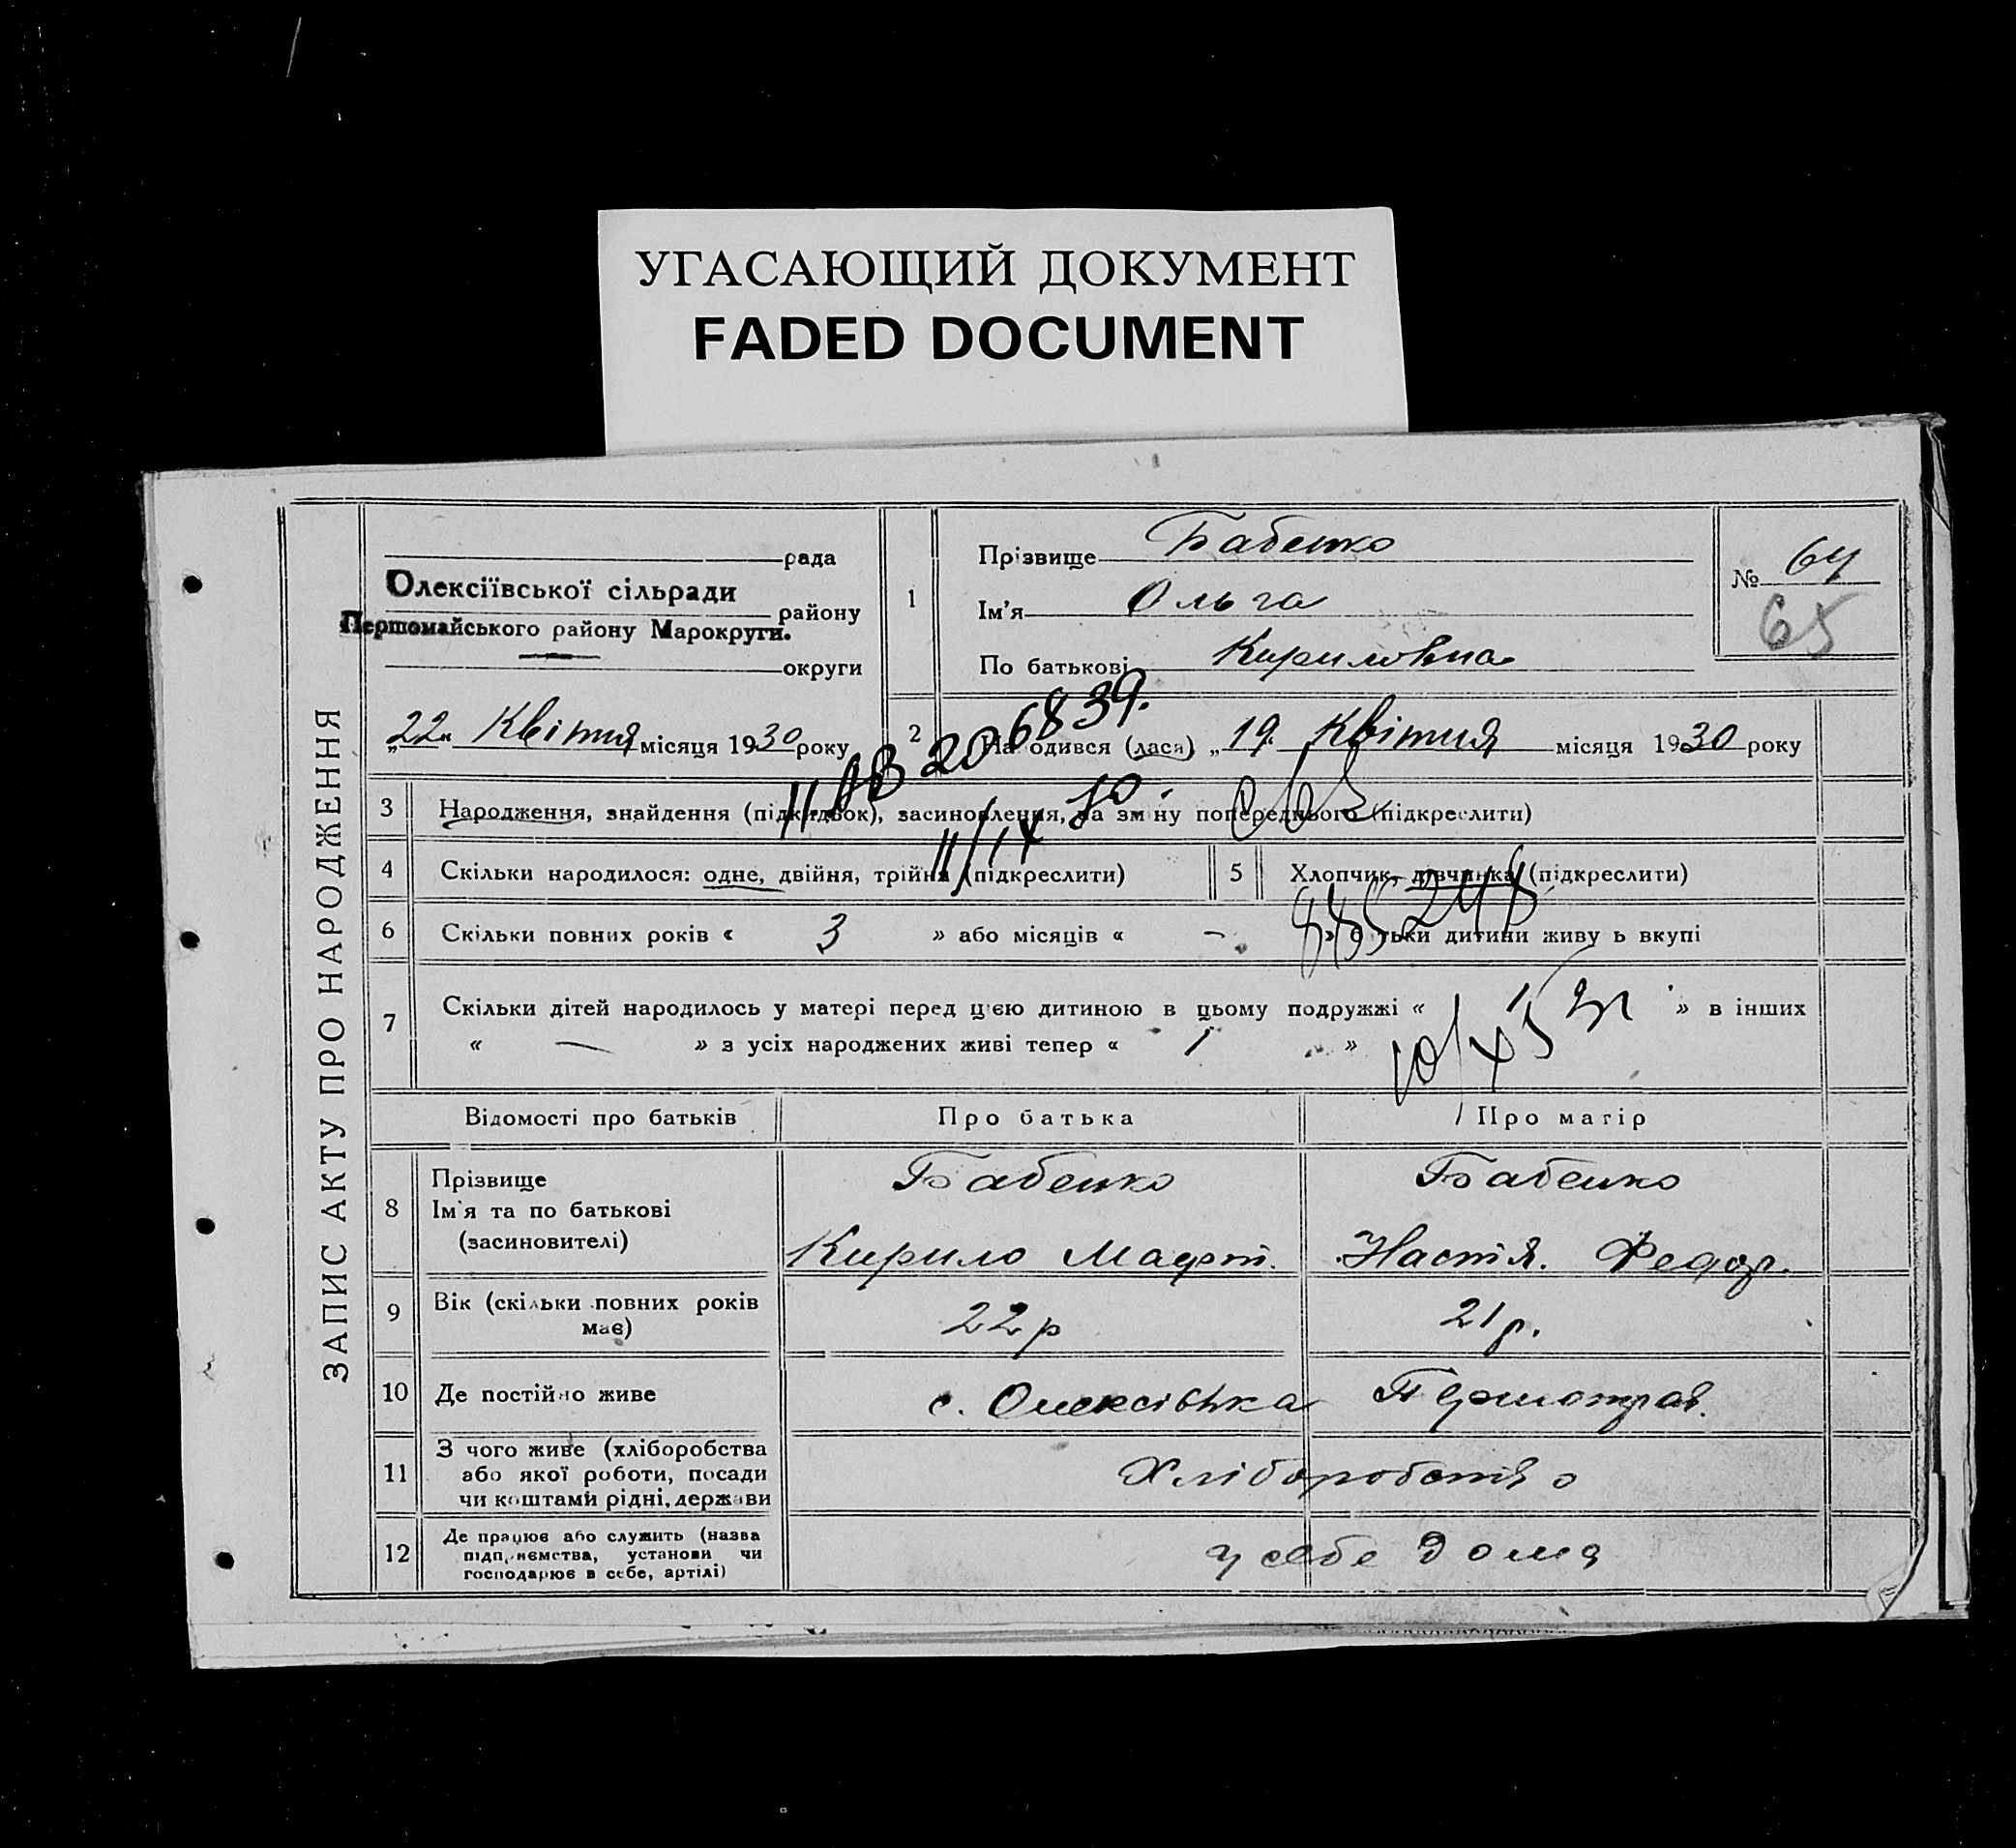 УГАСАЮЩИЙ ДОКУМЕНТ
FADED DOCUMENT
ЗАПИС АКТУ ПРО НАРОДЖЕННЯ
рада
Олексіївської сільради
району
Першомайського району Марокруги.
округи
„22" Квітня місяця 1930 року
1
Прізвище Бабенко
Ім'я Ольга
По батькові Кириловна
№ 64
65
2
На одився (лася) „19" Квітня місяця 1930 року
II АВ 2068 39.
3
Народження, знайдення (підкидьок), засиновлення, на зміну попереднього (підкреслити)
4
Скільки народилося: одне, двійня, трійня (підкреслити)
5
Хлопчик, дівчинка (підкреслити)
6
Скільки повних років « 3 » або місяців « – » б тьки дитини живу ь вкупі
7
Скільки дітей народилось у матері перед цією дитиною в цьому подружжі « 1 » в інших
« — » з усіх народжених живі тепер « 1 »
Відомості про батьків
Про батька
Про матір
8
Прізвище
Ім'я та по батькові
(засиновителі)
Бабенко
Кирило
Бабенко
Настя. Федор.
9
Вік (скільки повних років
має)
22р
21р.
10
Де постійно живе
с. Олексівка
11
З чого живе (хліборобства
або якої роботи, посади
чи коштами рідні, держави
Хліборобство
12
Де працює або служить (назва
підприємства, установи чи
господарює в себе, артілі)
у себе дома